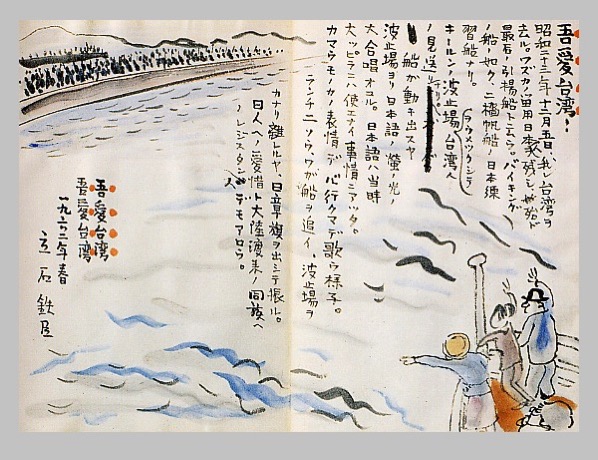 吾愛台湾!
昭和二十三年十二月五日、我レ台湾ヲ
去ル。ワズカノ留用日本人ヲ残シ、
最后ノ引揚船トナラン。バイキング
ノ船ノ如ク、二檣帆船ノ日本練
習船ナリ。
キールンノ波止場、台湾人
ノ見送リ
船が動キ出スヤ
波止場ヨリ日本語ノ螢ノ光ノ
大合唱オコル。日本語ハ当時
大ッピラニハ使エナイ事情ニアッタ。
カマウモノカノ表情デ、心行クマデ歌ウ様子。
ランチニソウワガ船ヲ追イ、波止場ヲ
カナリ離レルヤ、日章旗ヲ出シテ振ル。
日人ヘノ愛惜ト大陸渡来ノ同族ヘ
ノレジスタンスデモアロウ。
吾愛台湾
吾愛台湾
一九六二年春
立石鉄臣